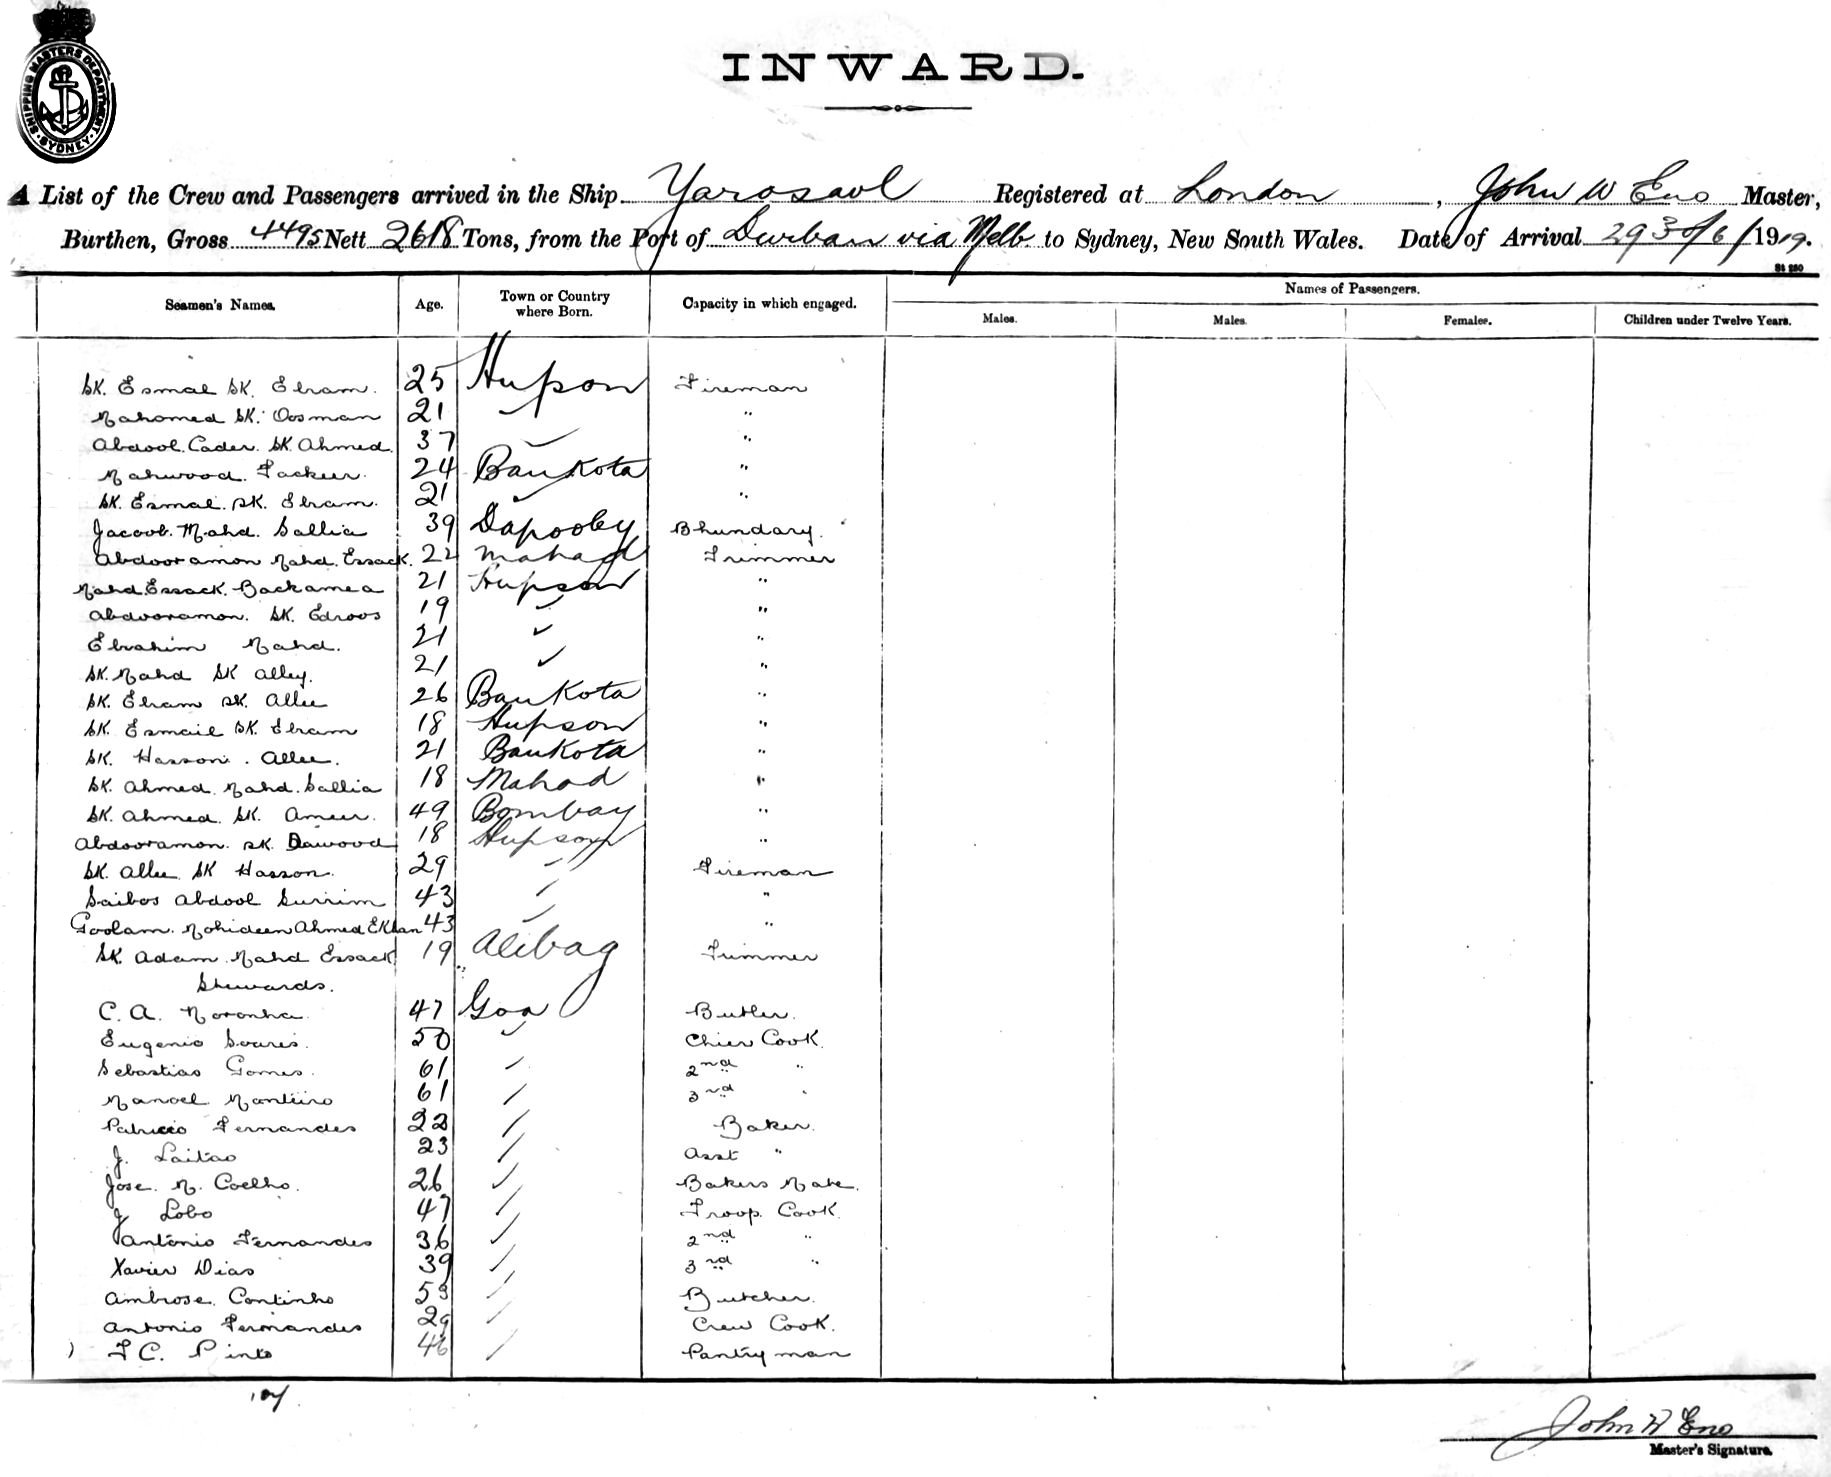 SHIPPING MASTERS DEPARTMENT · SYDNEY ·
INWARD.
A List of the Crew and Passengers arrived in the Ship Yarosavl Registered at London, John W Eno Master,
Burthen, Gross 4495 Nett 2618 Tons, from the Port of Durban via Melb to Sydney, New South Wales. Date of Arrival 29 30/6/1919.
Names of Passengers.
Seamen's Names. Age. Town or Country where Born. Capacity in which engaged. Males. Males. Females. Children under Twelve Years.
SK. Esmal SK. Ebram. 25 Hupson Fireman
Mahomed SK. Oosman 21 ✓ "
Abdool Cader. SK. Ahmed 37 ✓ "
Mahwood. Fackeer. 24 Bankota "
SK. Esmal. SK. Ebram. 21 ✓ "
Jacoob. Mahd. Sallia 39 Dapooley Bhundary.
Abdooramon Mahd. Essack. 22 Mahad Trimmer
Mahd Essack. Backamea 21 Hupson "
Abdooramon. SK. Edroos 19 ✓ "
Ebrahim Mahd. 21 ✓ "
SK. Mahd SK Alley. 21 ✓ "
SK. Ebram SK. Allee 26 Bankota "
SK. Esmail SK. Ebram 18 Hupson "
SK. Hasson. Allee. 21 Bankota "
SK. Ahmed. Mahd. Sallia 18 Mahad "
SK. Ahmed. SK. Ameer. 49 Bombay "
Abdooramon. SK. Dawood 18 Hupson "
SK. Allee SK Hasson. 29 ✓ Fireman
Saibos Abdool Surrim 43 ✓ "
Goolam. Mohideen Ahmed E Khan 43 ✓ "
SK. Adam. Mahd Essack 19 Alibag Trimmer
Stewards.
C. A. Noronha 47 Goa Butler.
Eugenio Soares. 50 ✓ Chief Cook.
Sebastiao Gomes. 61 ✓ 2nd "
Manoel Monteiro 61 ✓ 3rd "
Patricio Fernandes 22 ✓ Baker.
J. Laitao 23 ✓ Asst "
Jose. M. Coelho. 26 ✓ Bakers Mate.
J Lobo 47 ✓ Troop. Cook.
Antonio Fernandes 36 ✓ 2nd "
Xavier Dias 39 ✓ 3rd "
Ambrose. Continho 53 ✓ Butcher.
Antonio Fernandes 29 ✓ Crew Cook.
F C. Pinto 46 ✓ Pantryman
John W Eno
Master's Signature.